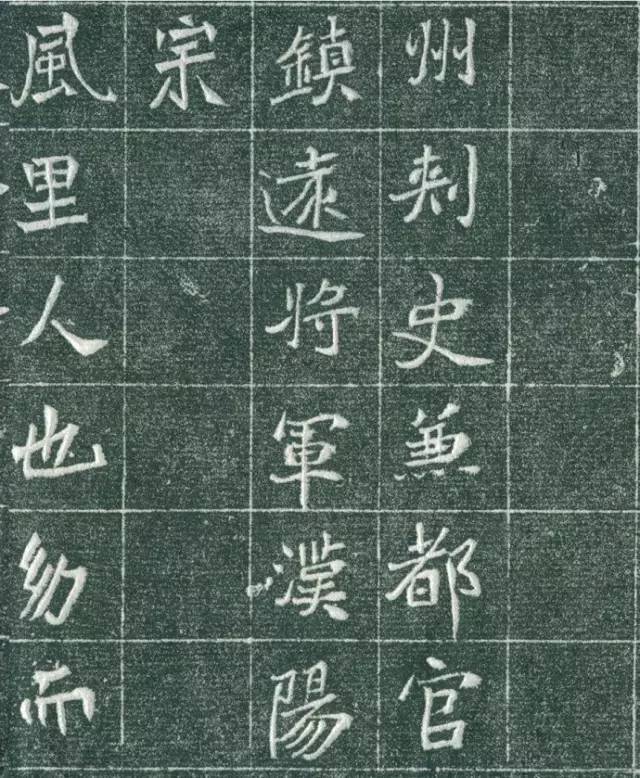 州刺史兼都官
鎮遠將軍漢陽
宗
風里人也幼而